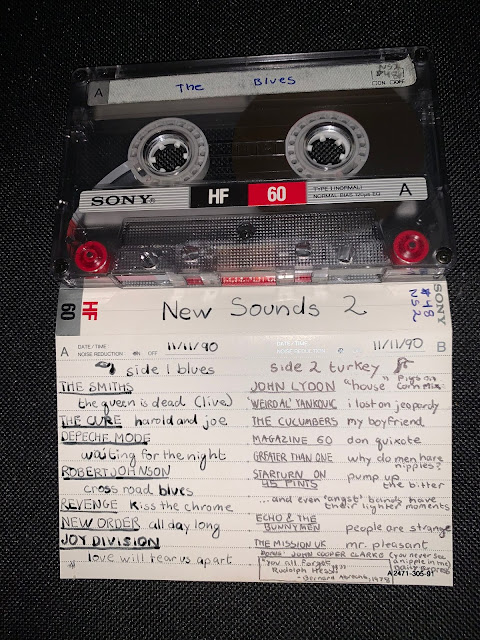 NS2
#48
A
The Blues
SONY
HF
60
TYPE I (NORMAL)
A
HF 60
New Sounds 2
#48
NS2
SONY
A
DATE / TIME
NOISE REDUCTION
OFF
11/11/90
DATE / TIME
NOISE REDUCTION
11/11/90
B
side 1 blues
THE SMITHS
the queen is dead (live)
THE CURE harold and joe
DEPECHE MODE
waiting for the night
ROBERT JOHNSON
cross road blues
REVENGE kiss the chrome
NEW ORDER all day long
JOY DIVISION
love will tear us apart
side 2 turkey
JOHN LYDON "house"
'WEIRD AL' YANKOVIC i lost on jeopardy
THE CUCUMBERS my boyfriend
MAGAZINE 60 don quixote
GREATER THAN ONE why do men have nipples?
STARTURN ON 45 PINTS pump up the bitter
...and even 'angst' bands have their lighter moments
ECHO & THE BUNNYMEN people are strange
THE MISSION UK mr. pleasant
BONUS: JOHN COOPER CLARKE (you never see a nipple in the Daily Express)
"You all forgot Rudolph Hess!"
- Bernard Albrecht, 1978
A 2471-305-91